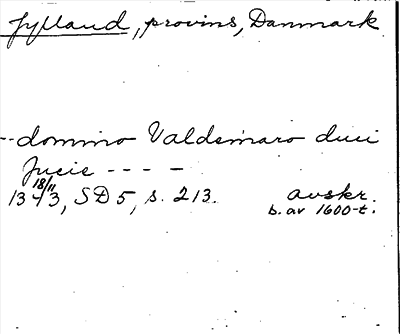 Jylland, provins, Danmark
--domino Valdemaro duci
Jucie ----
13 18/11 43, SD 5, s. 213. avskr.
b. av 1600-t.